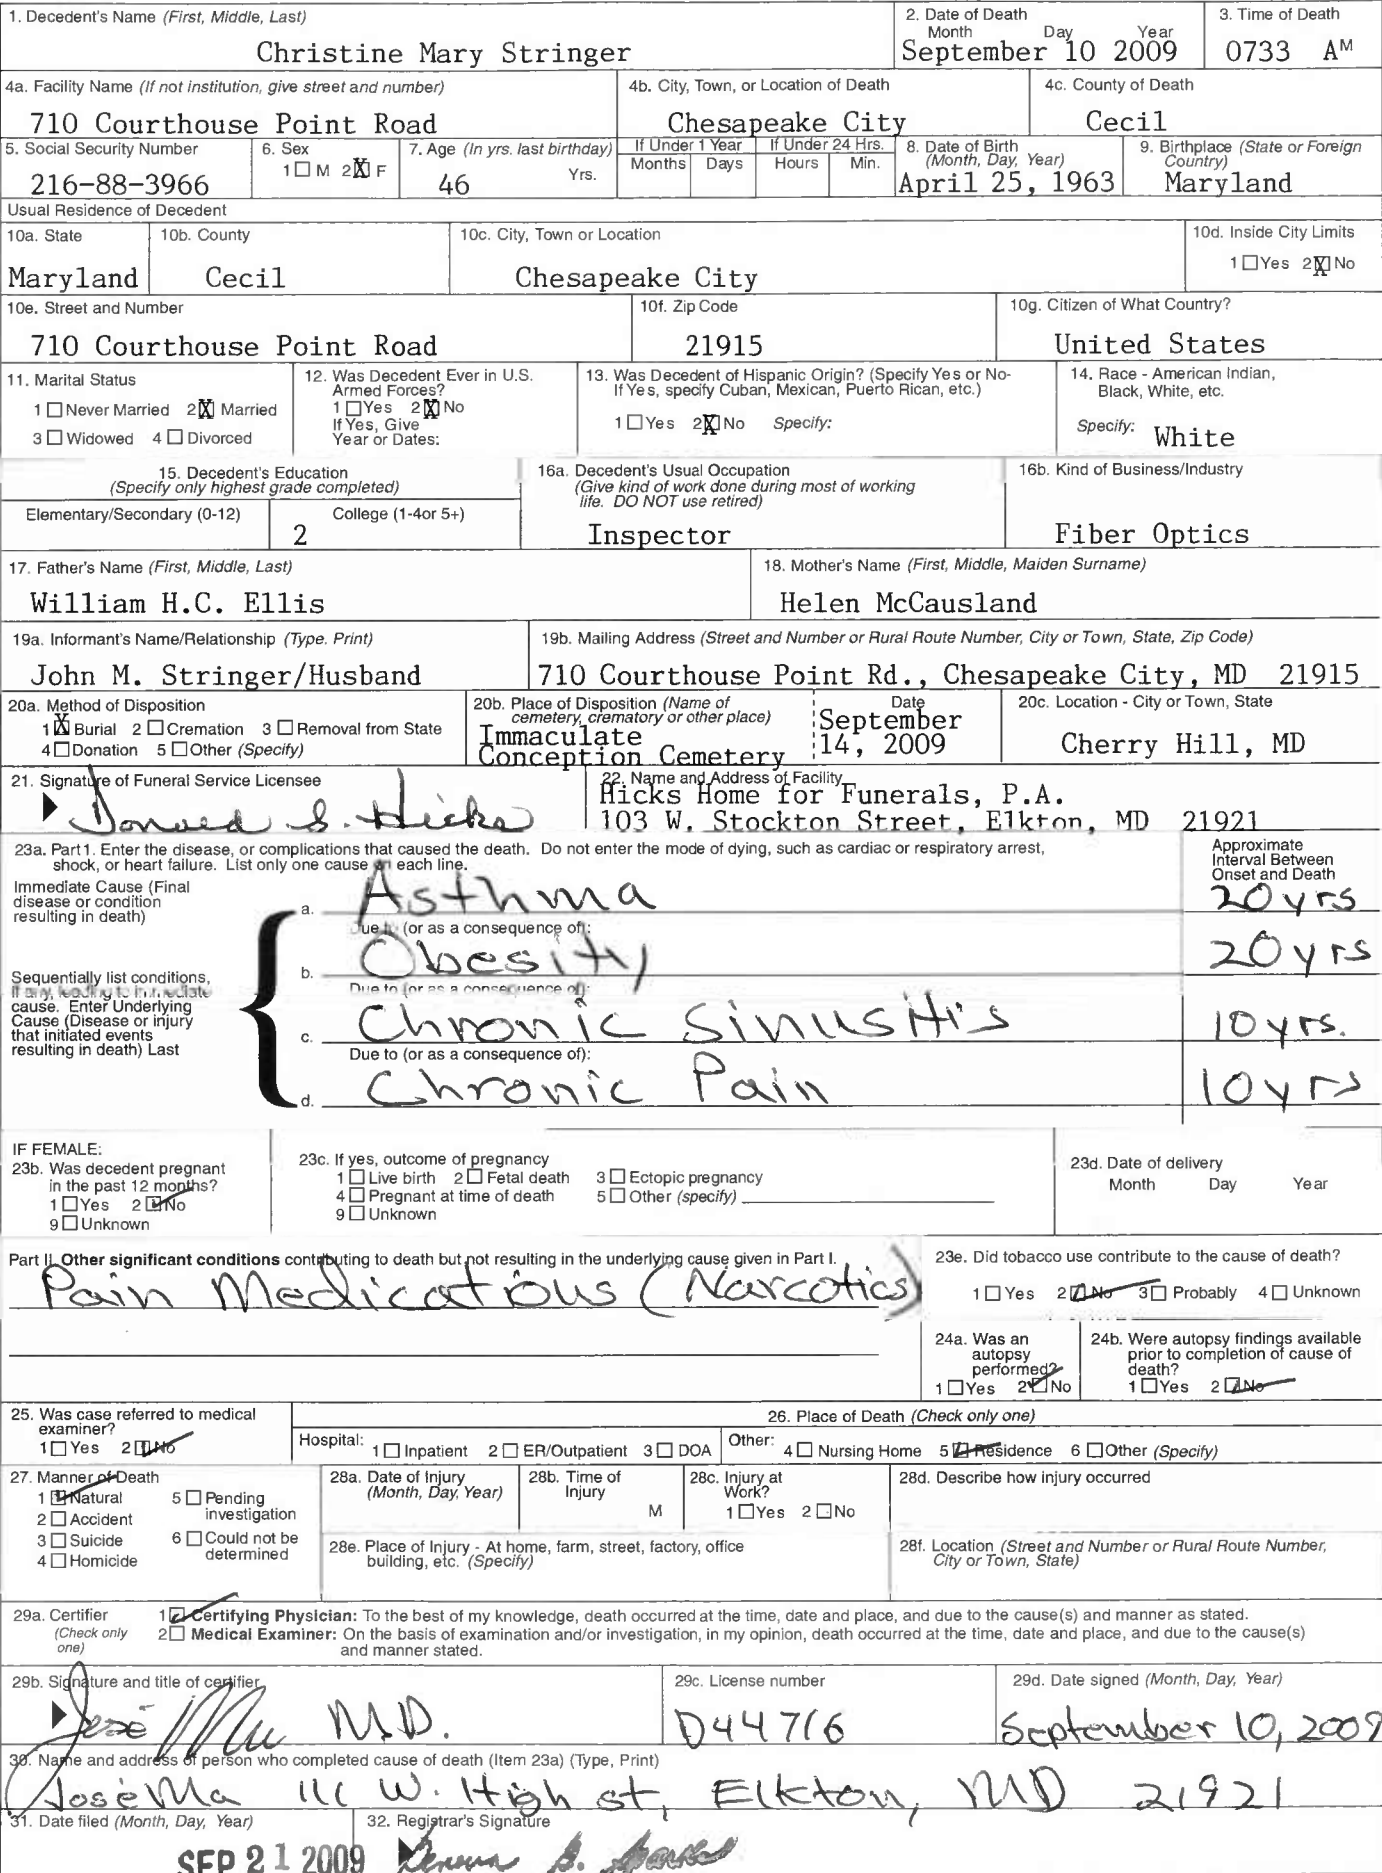 1. Decedent's Name (First, Middle, Last)
Christine Mary Stringer
2. Date of Death
Month Day Year
September 10 2009
3. Time of Death
0733 AM
4a. Facility Name (If not institution, give street and number)
710 Courthouse Point Road
4b. City, Town, or Location of Death
Chesapeake City
4c. County of Death
Cecil
5. Social Security Number
216-88-3966
6. Sex
1 M 2 X F
7. Age (In yrs. last birthday)
46 Yrs.
If Under 1 Year
Months Days
If Under 24 Hrs.
Hours Min.
8. Date of Birth
(Month, Day, Year)
April 25, 1963
9. Birthplace (State or Foreign
Country)
Maryland
Usual Residence of Decedent
10a. State
Maryland
10b. County
Cecil
10c. City, Town or Location
Chesapeake City
10d. Inside City Limits
1 Yes 2 X No
10e. Street and Number
710 Courthouse Point Road
10f. Zip Code
21915
10g. Citizen of What Country?
United States
11. Marital Status
1 Never Married 2 X Married
3 Widowed 4 Divorced
12. Was Decedent Ever in U.S.
Armed Forces?
1 Yes 2 X No
If Yes, Give
Year or Dates:
13. Was Decedent of Hispanic Origin? (Specify Yes or No-
If Yes, specify Cuban, Mexican, Puerto Rican, etc.)
1 Yes 2 X No Specify:
14. Race - American Indian,
Black, White, etc.
Specify: White
15. Decedent's Education
(Specify only highest grade completed)
Elementary/Secondary (0-12)
College (1-4or 5+)
2
16a. Decedent's Usual Occupation
(Give kind of work done during most of working
life. DO NOT use retired)
Inspector
16b. Kind of Business/Industry
Fiber Optics
17. Father's Name (First, Middle, Last)
William H.C. Ellis
18. Mother's Name (First, Middle, Maiden Surname)
Helen McCausland
19a. Informant's Name/Relationship (Type. Print)
John M. Stringer/Husband
19b. Mailing Address (Street and Number or Rural Route Number, City or Town, State, Zip Code)
710 Courthouse Point Rd., Chesapeake City, MD 21915
20a. Method of Disposition
1 X Burial 2 Cremation 3 Removal from State
4 Donation 5 Other (Specify)
20b. Place of Disposition (Name of
cemetery, crematory or other place)
Immaculate
Conception Cemetery
Date
September
14, 2009
20c. Location - City or Town, State
Cherry Hill, MD
21. Signature of Funeral Service Licensee
Donald S. Hicks
22. Name and Address of Facility
Hicks Home for Funerals, P.A.
103 W. Stockton Street, Elkton, MD 21921
23a. Part 1. Enter the disease, or complications that caused the death. Do not enter the mode of dying, such as cardiac or respiratory arrest,
shock, or heart failure. List only one cause on each line.
Approximate
Interval Between
Onset and Death
Immediate Cause (Final
disease or condition
resulting in death)
a. Asthma 20 yrs
Due to (or as a consequence of):
b. Obesity 20 yrs
Sequentially list conditions,
if any, leading to immediate
cause. Enter Underlying
Cause (Disease or injury
that initiated events
resulting in death) Last
Due to (or as a consequence of):
c. Chronic Sinusitis 10 yrs.
Due to (or as a consequence of):
d. Chronic Pain 10 yrs
IF FEMALE:
23b. Was decedent pregnant
in the past 12 months?
1 Yes 2 No
9 Unknown
23c. If yes, outcome of pregnancy
1 Live birth 2 Fetal death 3 Ectopic pregnancy
4 Pregnant at time of death 5 Other (specify)
9 Unknown
23d. Date of delivery
Month Day Year
Part II. Other significant conditions contributing to death but not resulting in the underlying cause given in Part I.
Pain Medications (Narcotics)
23e. Did tobacco use contribute to the cause of death?
1 Yes 2 No 3 Probably 4 Unknown
24a. Was an
autopsy
performed?
1 Yes 2 No
24b. Were autopsy findings available
prior to completion of cause of
death?
1 Yes 2 No
25. Was case referred to medical
examiner?
1 Yes 2 No
26. Place of Death (Check only one)
Hospital: 1 Inpatient 2 ER/Outpatient 3 DOA Other: 4 Nursing Home 5 Residence 6 Other (Specify)
27. Manner of Death
1 Natural 5 Pending
investigation
2 Accident
3 Suicide 6 Could not be
determined
4 Homicide
28a. Date of Injury
(Month, Day, Year)
28b. Time of
Injury
M
28c. Injury at
Work?
1 Yes 2 No
28d. Describe how injury occurred
28e. Place of Injury - At home, farm, street, factory, office
building, etc. (Specify)
28f. Location (Street and Number or Rural Route Number,
City or Town, State)
29a. Certifier
(Check only
one)
1 Certifying Physician: To the best of my knowledge, death occurred at the time, date and place, and due to the cause(s) and manner as stated.
2 Medical Examiner: On the basis of examination and/or investigation, in my opinion, death occurred at the time, date and place, and due to the cause(s)
and manner stated.
29b. Signature and title of certifier
José Ma M.D.
29c. License number
D44716
29d. Date signed (Month, Day, Year)
September 10, 2009
30. Name and address of person who completed cause of death (Item 23a) (Type, Print)
José Ma 111 W. High st, Elkton, MD 21921
31. Date filed (Month, Day, Year)
SEP 21 2009
32. Registrar's Signature